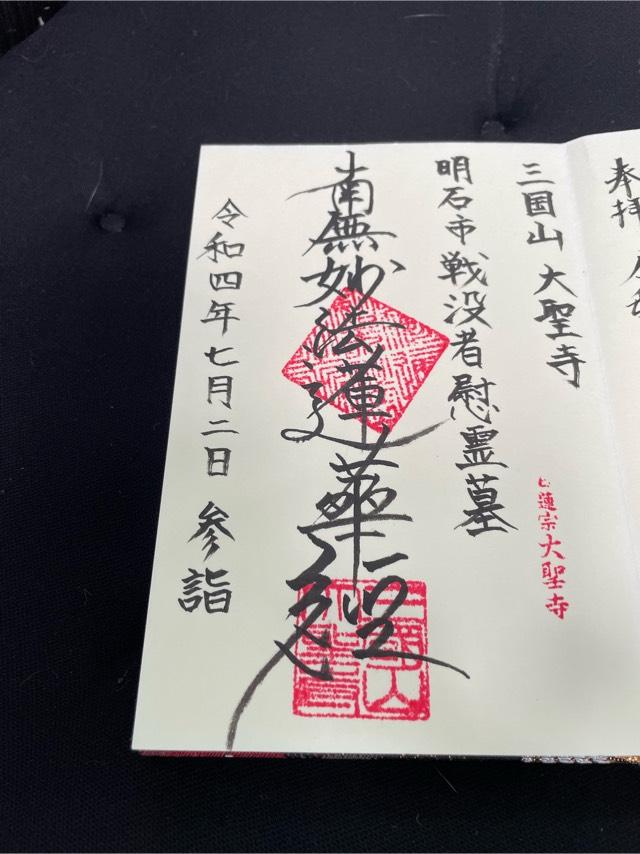 奉拝
三国山 大聖寺
日蓮宗大聖寺
明石市戦没者慰霊墓
南無妙法蓮華経
令和四年七月二日 参詣